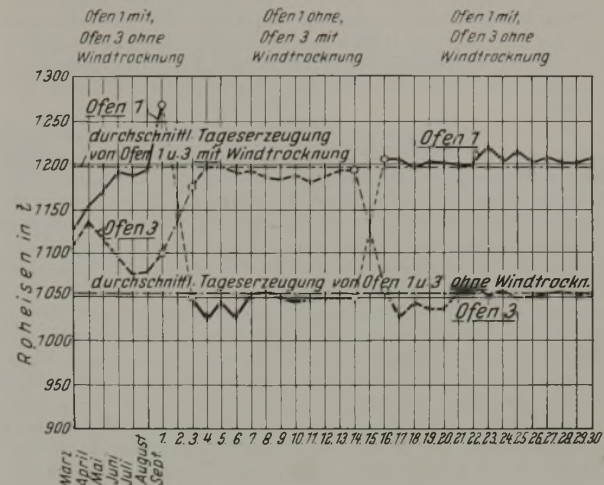 Ofen 1 mit,
Ofen 3 ohne
Windtrocknung
Ofen 1 ohne,
Ofen 3 mit
Windtrocknung
Ofen 1 mit,
Ofen 3 ohne
Windtrocknung
Roheisen in t
1300
1250
1200
1150
1100
1050
1000
950
900
Ofen 1
durchschnittl. Tageserzeugung
von Ofen 1 u. 3 mit Windtrocknung
Ofen 1
Ofen 3
durchschnittl. Tageserzeugung von Ofen 1 u 3 ohne Windtrockn.
Ofen 3
März
April
Mai
Juni
Juli
August
Sept.
1. 2. 3. 4. 5. 6. 7. 8. 9. 10. 11. 12. 13. 14. 15. 16. 17. 18. 19. 20. 21. 22. 23. 24. 25. 26. 27. 28. 29. 30